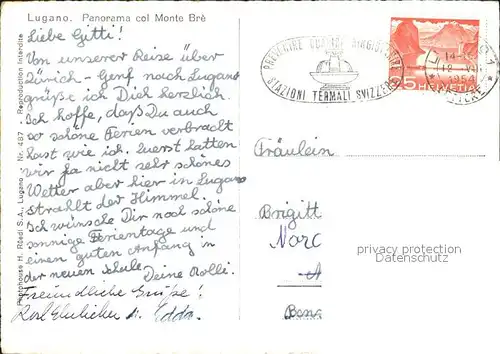 Lugano. Panorama col Monte Brè
Liebe Gitti!
Von unserer Reise über
Zürich - Genf nach Lugano
grüße ich Dich herzlich.
Ich hoffe, daß Du auch
so schöne Ferien verbracht
hast wie ich. Zuerst hatten
wir ja nicht sehr schönes
Wetter aber hier in Lugano
strahlt der Himmel.
Ich wünsche Dir noch schöne
sonnige Ferientage und
einen guten Anfang in
der neuen Schule.
Deine Rolli.
Freundliche Grüße!
Karl Ehrlicher u. Edda.
Photohouse H. Rüedi S.A., Lugano Nr. 487 Reproduction interdite
STAZIONI TERMALI SVIZZERE
1954
25 HELVETIA
Fräulein
Brigitt
privacy protection
Personaldaten - Datenschutz